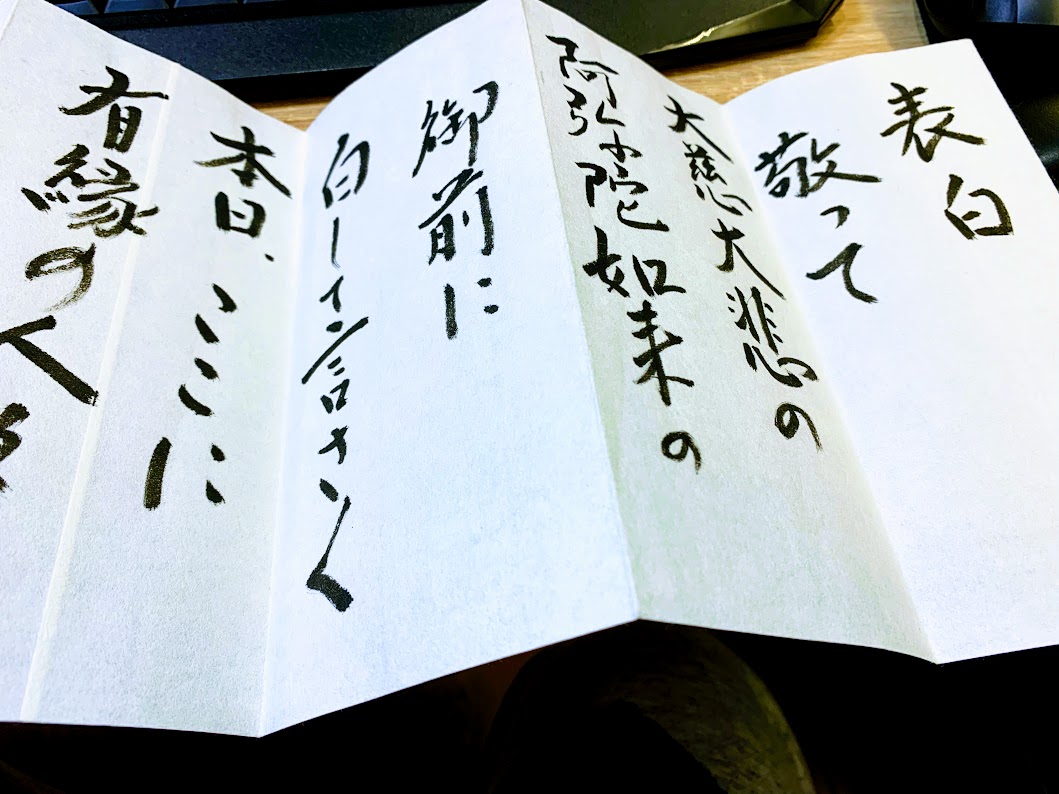 表白
敬って
大慈大悲の
阿弥陀如来の
御前に
白して言さく
本日、ここに
有縁の人々